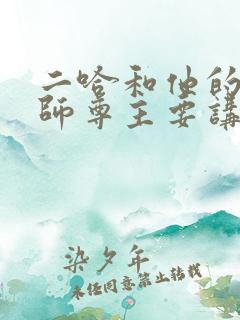 二哈和他的
師尊主要講
染夕年
未經同意禁止轉載